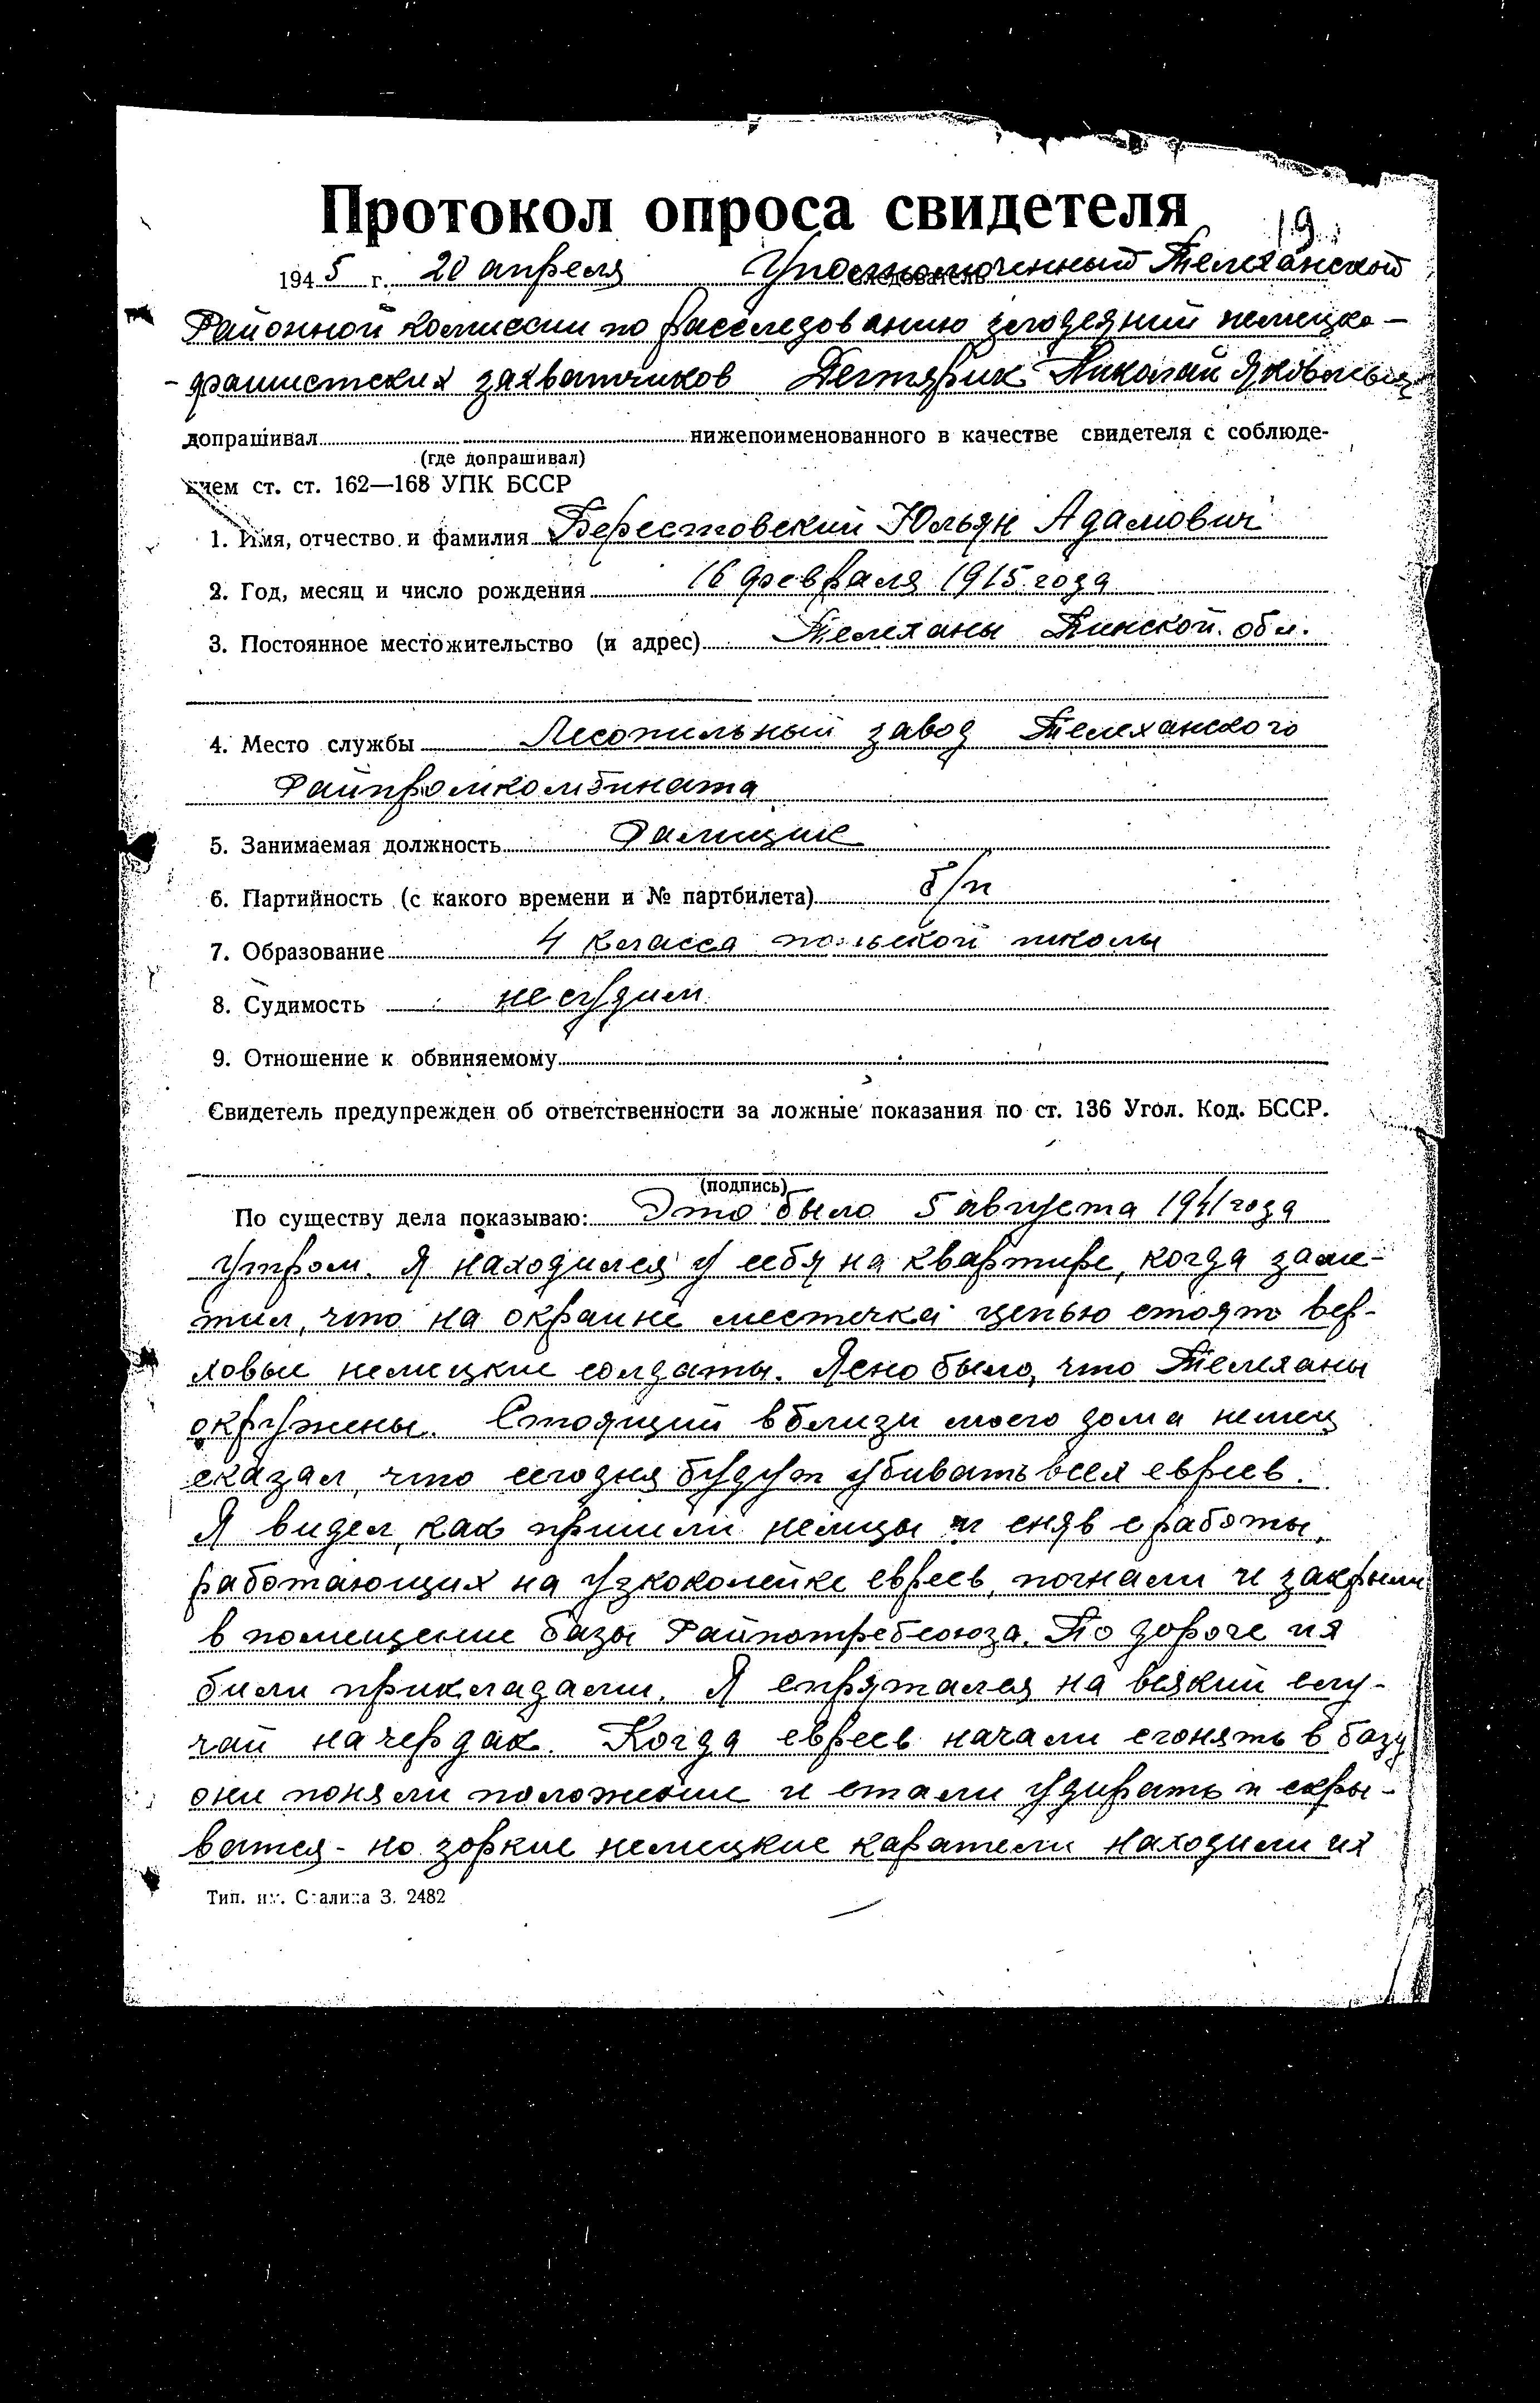 Протокол опроса свидетеля
19
1945 г. 20 апреля Уполномоченный Телеханской
Районной комиссии по расследованию злодеяний немецко-
-фашистских захватчиков Дегтярик Николай Яковлевич
допрашивал нижепоименованного в качестве свидетеля с соблюде-
(где допрашивал)
нием ст. ст. 162—168 УПК БССР
1. Имя, отчество и фамилия Берестовский Юльян Адамович
2. Год, месяц и число рождения 16 февраля 1915 года
3. Постоянное местожительство (и адрес) Телеханы Пинской обл.
4. Место службы Лесопильный завод Телеханского
Райпромкомбината
5. Занимаемая должность Рамщик
6. Партийность (с какого времени и № партбилета) б/п
7. Образование 4 класса польской школы
8. Судимость не судим
9. Отношение к обвиняемому
Свидетель предупрежден об ответственности за ложные показания по ст. 136 Угол. Код. БССР.
(подпись)
По существу дела показываю: Это было 5 августа 1941 года
утром. Я находился у себя на квартире, когда заме-
тил, что на окраине местечка цепью стоят вер-
ховые немецкие солдаты. Ясно было, что Телеханы
окружены. Стоящий вблизи моего дома немец
сказал, что сегодня будут убивать всех евреев.
Я видел, как пришли немцы и сняв с работы,
работающих на узкоколейке евреев, погнали и закрыли
в помещение базы Райпотребсоюза. По дороге их
били прикладами. Я спрятался на всякий слу-
чай на чердак. Когда евреев начали сгонять в базу
они поняли положение и стали удирать и скры-
ватся - но зоркие немецкие каратели находили их
Тип. им. Сталина З. 2482